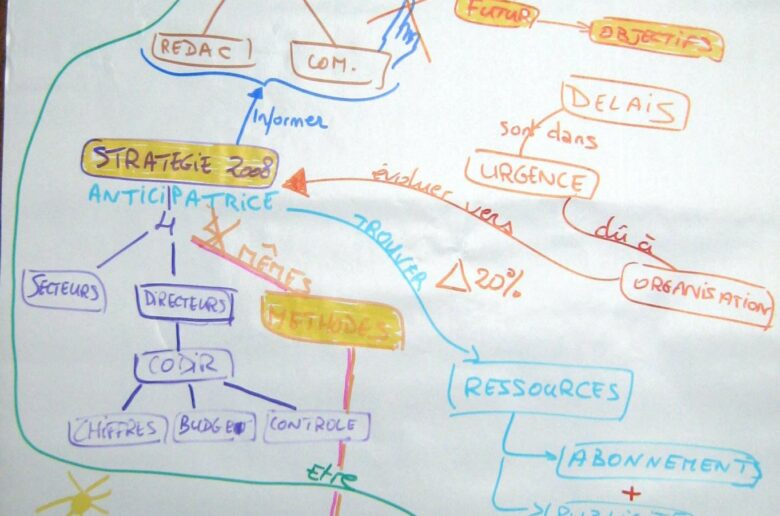 FUTUR
OBJECTIFS
REDAC
COM.
DELAIS
Informer
sont dans
STRATEGIE 2008
URGENCE
évoluer vers
ANTICIPATRICE
TROUVER
dû à
4
MÊMES
△ 20%
ORGANISATION
SECTEURS
DIRECTEURS
METHODES
CODIR
RESSOURCES
CHIFFRES
BUDGET
CONTROLE
Etre
ABONNEMENTS
+